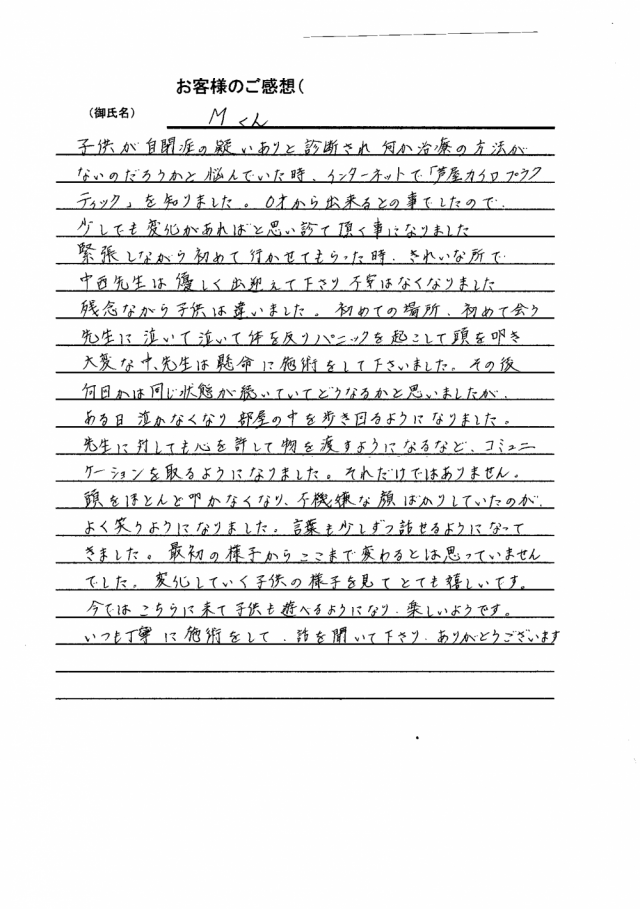 お客様のご感想（
（御氏名） Mくん
子供が自閉症の疑いありと診断され 何か治療の方法が
ないのだろうかと悩んでいた時、インターネットで「芦屋カイロプラク
ティック」を知りました。0才から出来るとの事でしたので、
少しでも変化があればと思い診て頂く事になりました
緊張しながら初めて行かせてもらった時、きれいな所で
中西先生は優しく出迎えて下さり不安はなくなりました
残念ながら子供は違いました。初めての場所、初めて会う
先生に泣いて泣いて体を反りパニックを起こして頭を叩き
大変な中、先生は懸命に施術をして下さいました。その後
何日かは同じ状態が続いていてどうなるかと思いましたが、
ある日 泣かなくなり 部屋の中を歩き回るようになりました。
先生に対しても心を許して物を渡すようになるなど、コミュニ
ケーションを取るようになりました。それだけではありません。
頭をほとんど叩かなくなり、不機嫌な顔ばかりしていたのが、
よく笑うようになりました。言葉も少しずつ話せるようになって
きました。最初の様子からここまで変わるとは思っていません
でした。変化していく子供の様子を見てとても嬉しいです。
今ではこちらに来て子供も遊べるようになり、楽しいようです。
いつも丁寧に施術をして、話を聞いて下さり、ありがとうございます